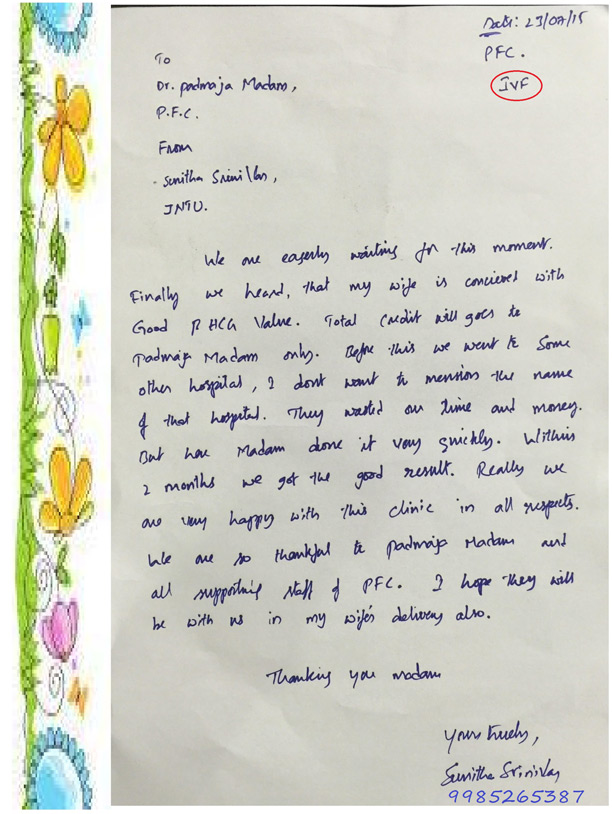 Date: 23/07/15
PFC.
IVF
To
Dr. Padmaja Madam,
P.F.C.
From
Sunitha Srinivas,
JNTU.
We are eagerly waiting for this moment.
Finally we heard, that my wife is concieved with
Good β HCG Value. Total Credit will goes to
Padmaja Madam only. Before this we went to Some
other hospital, I dont want to mension the name
of that hospital. They wasted our time and money.
But here Madam done it very quickly. Within
2 months we got the good result. Really we
are very happy with this clinic in all respects.
We are so thankful to padmaja Madam and
all supporting staff of PFC. I hope they will
be with us in my wife's delivery also.
Thanking you madam
Yours truely,
Sunitha Srinivas
9985265387